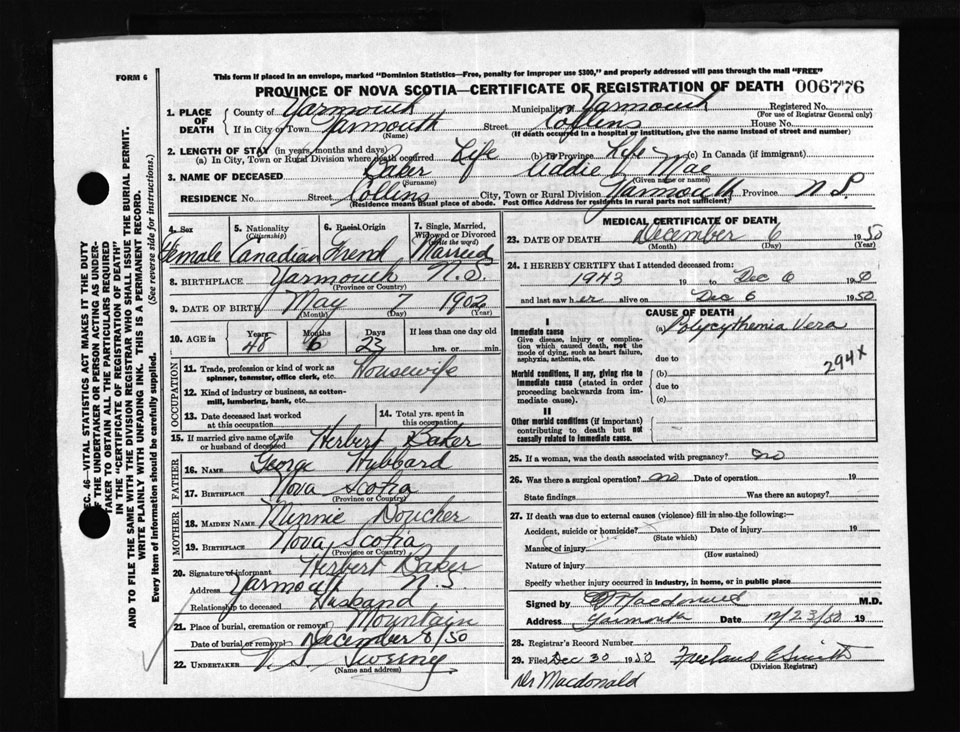 FORM 6
This form if placed in an envelope, marked "Dominion Statistics—Free, penalty for improper use $300," and properly addressed will pass through the mail "FREE"
PROVINCE OF NOVA SCOTIA—CERTIFICATE OF REGISTRATION OF DEATH 006776
1. PLACE OF DEATH
County of Yarmouth Municipality of Yarmouth Registered No.
(For use of Registrar General only)
If in City or Town Yarmouth Street Collins House No.
(Name) (If death occurred in a hospital or institution, give the name instead of street and number)
2. LENGTH OF STAY (in years, months and days)
(a) In City, Town or Rural Division where death occurred Life (b) In Province Life (c) In Canada (if immigrant)
3. NAME OF DECEASED Baker Addie Mae
(Surname) (Given name or names)
RESIDENCE No. Street Collins City, Town or Rural Division Yarmouth Province N S.
(Residence means usual place of abode. Post Office Address for residents in rural parts not sufficient)
4. Sex 5. Nationality (Citizenship) 6. Racial Origin 7. Single, Married, Widowed or Divorced (write the word)
Female Canadian Married
8. BIRTHPLACE Yarmouth N.S.
(Province or Country)
9. DATE OF BIRTH May 7 1902
(Month) (Day) (Year)
10. AGE in Years Months Days If less than one day old
48 6 23 hrs. or min.
OCCUPATION
11. Trade, profession or kind of work as spinner, teamster, office clerk, etc. Housewife
12. Kind of industry or business, as cotton-mill, lumbering, bank, etc.
13. Date deceased last worked at this occupation
14. Total yrs. spent in this occupation
15. If married give name of wife or husband of deceased Herbert Baker
FATHER
16. NAME George Hubbard
17. BIRTHPLACE Nova Scotia
(Province or Country)
MOTHER
18. MAIDEN NAME Minnie Doucher
19. BIRTHPLACE Nova Scotia
(Province or Country)
20. Signature of informant Herbert Baker
Address Yarmouth N.S
Relationship to deceased Husband
21. Place of burial, cremation or removal Mountain
Date of burial or removal December 8/50
22. UNDERTAKER V. S. Sweeny
(Name and address)
MEDICAL CERTIFICATE OF DEATH
23. DATE OF DEATH December 6 1950
(Month) (Day) (Year)
24. I HEREBY CERTIFY that I attended deceased from:
1943 19 to Dec 6 1950
and last saw her alive on Dec 6 1950
CAUSE OF DEATH
I
Immediate cause
Give disease, injury or complication which caused death, not the mode of dying, such as heart failure, asphyxia, asthenia, etc.
(a) Polycythemia Vera
due to
294x
Morbid conditions, if any, giving rise to immediate cause (stated in order proceeding backwards from immediate cause).
(b)
due to
(c)
II
Other morbid conditions (if important) contributing to death but not causally related to immediate cause.
25. If a woman, was the death associated with pregnancy? no
26. Was there a surgical operation? no Date of operation 19
State findings Was there an autopsy?
27. If death was due to external causes (violence) fill in also the following:—
Accident, suicide or homicide? Date of injury 19
(State which)
Manner of injury
(How sustained)
Nature of injury
Specify whether injury occurred in industry, in home, or in public place
Signed by Macdonald M.D.
Address Yarmouth Date 12/23/50 19
28. Registrar's Record Number
29. Filed Dec 30 1950 Freeland E Smith
(Division Registrar)
Dr Macdonald
SEC. 46—VITAL STATISTICS ACT MAKES IT THE DUTY
OF THE UNDERTAKER OR PERSON ACTING AS UNDERTAKER TO OBTAIN ALL THE PARTICULARS REQUIRED
IN THE "CERTIFICATE OF REGISTRATION OF DEATH"
AND TO FILE THE SAME WITH THE DIVISION REGISTRAR WHO SHALL ISSUE THE BURIAL PERMIT.
WRITE PLAINLY WITH UNFADING INK. THIS IS A PERMANENT RECORD.
Every item of information should be carefully supplied. (See reverse side for instructions.)